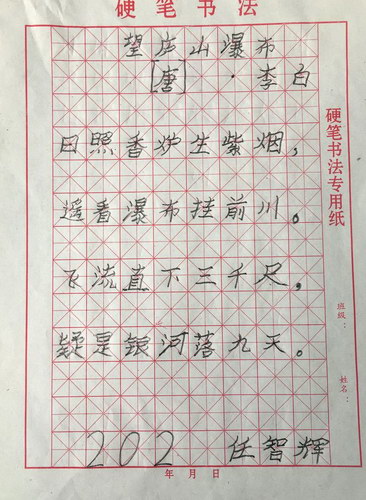 硬笔书法
望庐山瀑布
[唐]·李白
日照香炉生紫烟，
遥看瀑布挂前川。
飞流直下三千尺，
疑是银河落九天。
202 任智辉
年月日
硬笔书法专用纸
班级：
姓名：